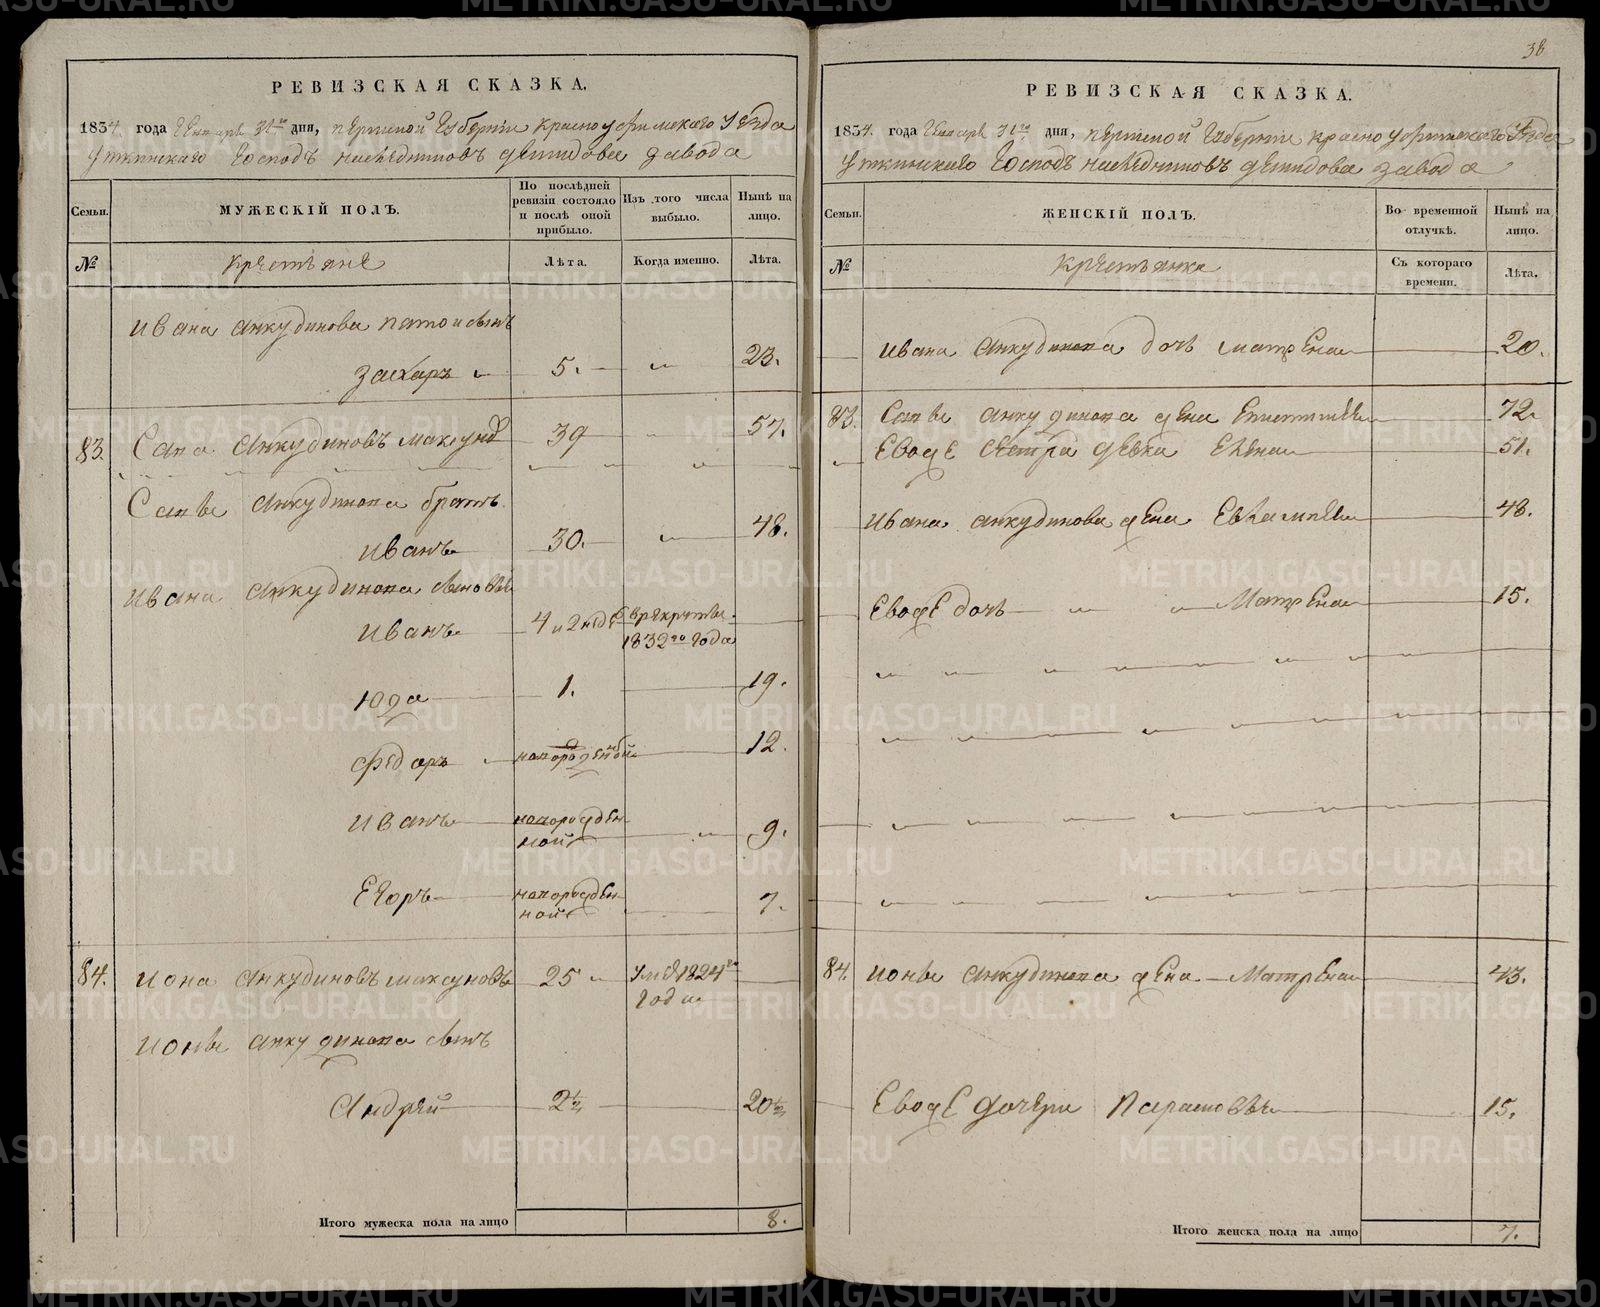 38
РЕВИЗСКАЯ СКАЗКА.
1834. года Генваря 31го дня, Пермской Губернии Красноуфимскаго Уезда
Уткинскаго Господъ наследниковъ Демидова завода
Семьи.
МУЖЕСКІЙ ПОЛЪ.
По послѣдней ревизіи состояло и послѣ оной прибыло.
Изъ того числа выбыло.
Нынѣ на лицо.
№
Крестьяне
Лѣта.
Когда именно.
Лѣта.
Ивана Анкудинова сынъ
Захаръ 5. 23.
83. Сапа Анкудиновъ 39 57.
Анкудинова братъ
Иванъ 30. 48.
Ивана Анкудинова сыновья
Иванъ 4 и 2 неде
1832го года
Юда 1. 19.
Федоръ новорожденной 12.
Иванъ новорожден-
ной 9.
Егоръ новорожден-
ной 7.
84. Иона Анкудиновъ 25 1824го
года
Ионы Анкудинова сынъ
Андрей 2½ 20½
Итого мужеска пола на лицо 8.
РЕВИЗСКАЯ СКАЗКА.
1834. года Генваря 31го дня, Пермской Губернии Красноуфимскаго Уезда
Уткинскаго Господъ наследниковъ Демидова завода
Семьи.
ЖЕНСКІЙ ПОЛЪ.
Во временной отлучкѣ.
Нынѣ на лицо.
№
Крестьянка
Съ котораго времени.
Лѣта.
Ивана Анкудинова дочь Матрена 20.
83. Анкудинова жена 72.
Евоже сестра девка Елена 51.
Ивана Анкудинова жена Евлампия 48.
Евоже дочь Матрена 15.
84. Ионы Анкудинова жена Матрена 43.
Евоже дочери 15.
Итого женска пола на лицо 7.
METRIKI.GASO-URAL.RU